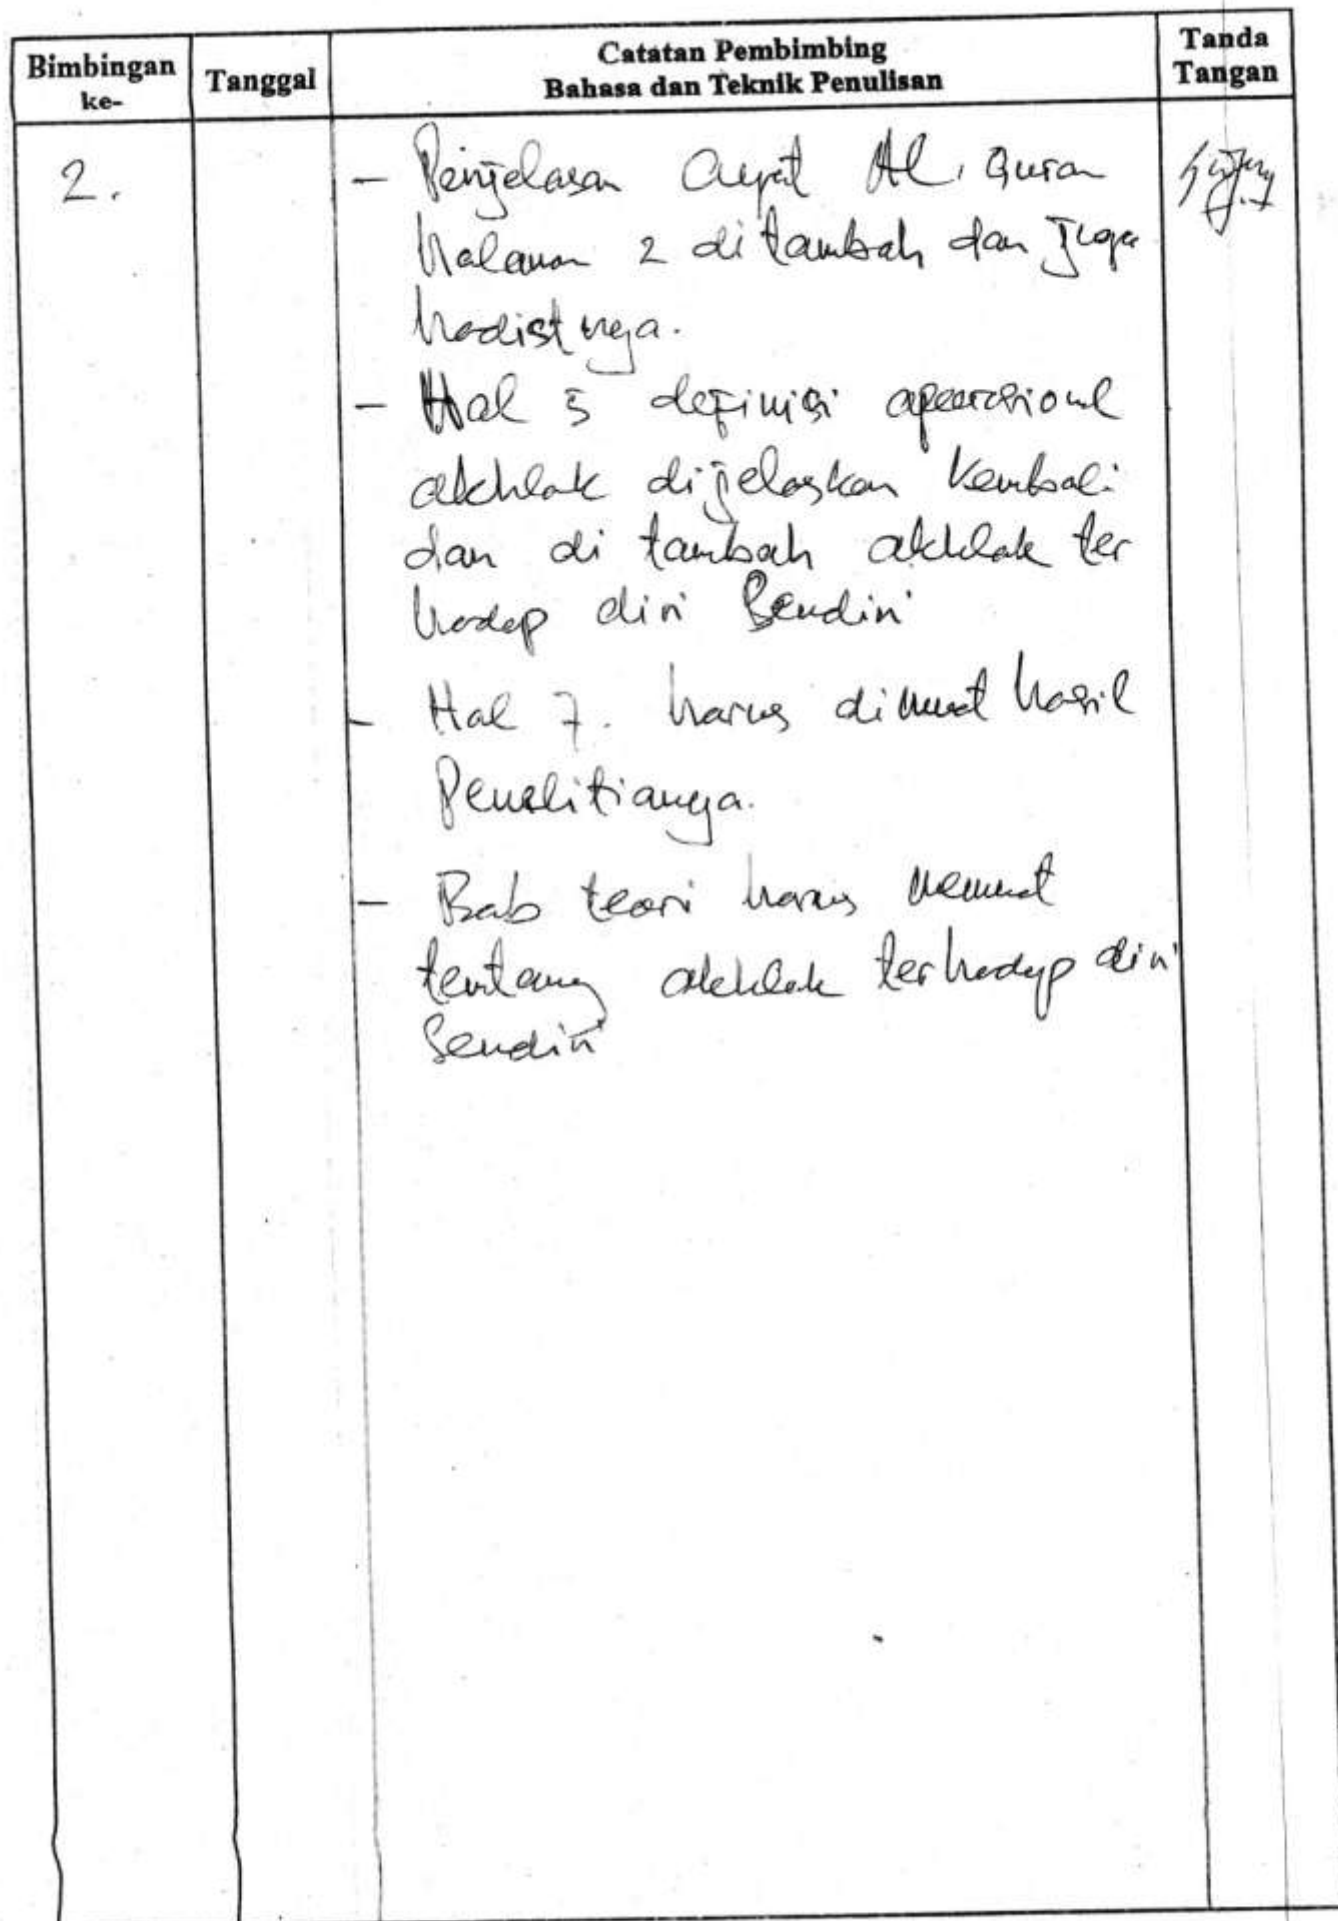 Bimbingan ke-
Tanggal
Catatan Pembimbing
Bahasa dan Teknik Penulisan
Tanda Tangan
2.
- Penjelasan Ayat Al. Quran
halaman 2 di tambah dan juga
hadistnya.
- Hal 5 definisi operasional
akhlak dijelaskan kembali
dan di tambah akhlak ter
hadap diri Sendiri
- Hal 7. harus dimuat hasil
Penelitianya.
- Bab teori harus memuat
tentang akhlak terhadap diri
Sendiri